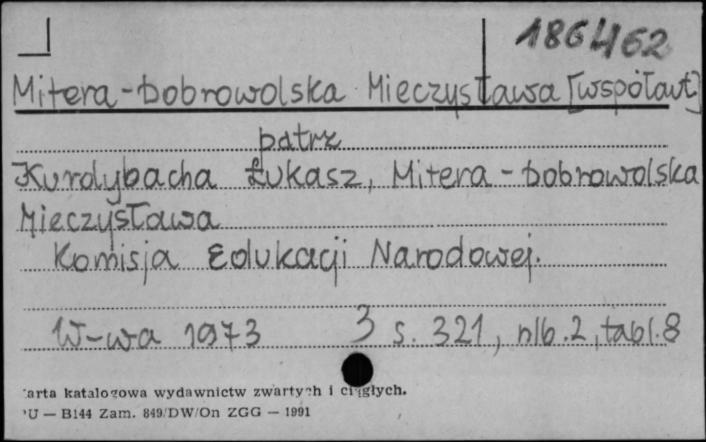 186462
Mitera-Dobrowolska Mieczysława [współaut]
patrz
Kurdybacha Łukasz, Mitera-Dobrowolska
Mieczysława
Komisja Edukacji Narodowej.
W-wa 1973 3 s. 321, nlb. 2, tabl. 8
arta katalogowa wydawnictw zwartych i ciągłych.
U — B144 Zam. 849/DW/On ZGG — 1991